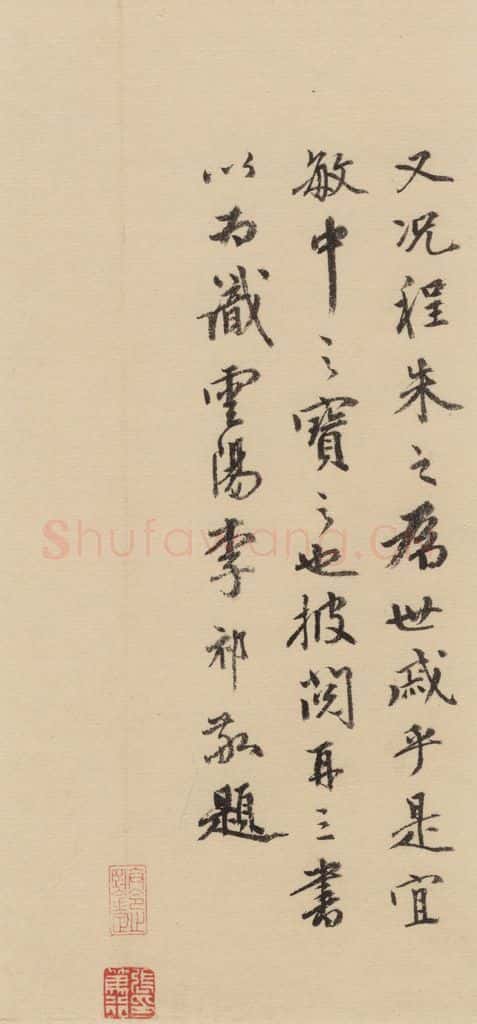 又况程朱之爲世戚乎是宜
敏中之寶之也披閱再三書
以为識雲陽李祁敬題
Shufawang.c